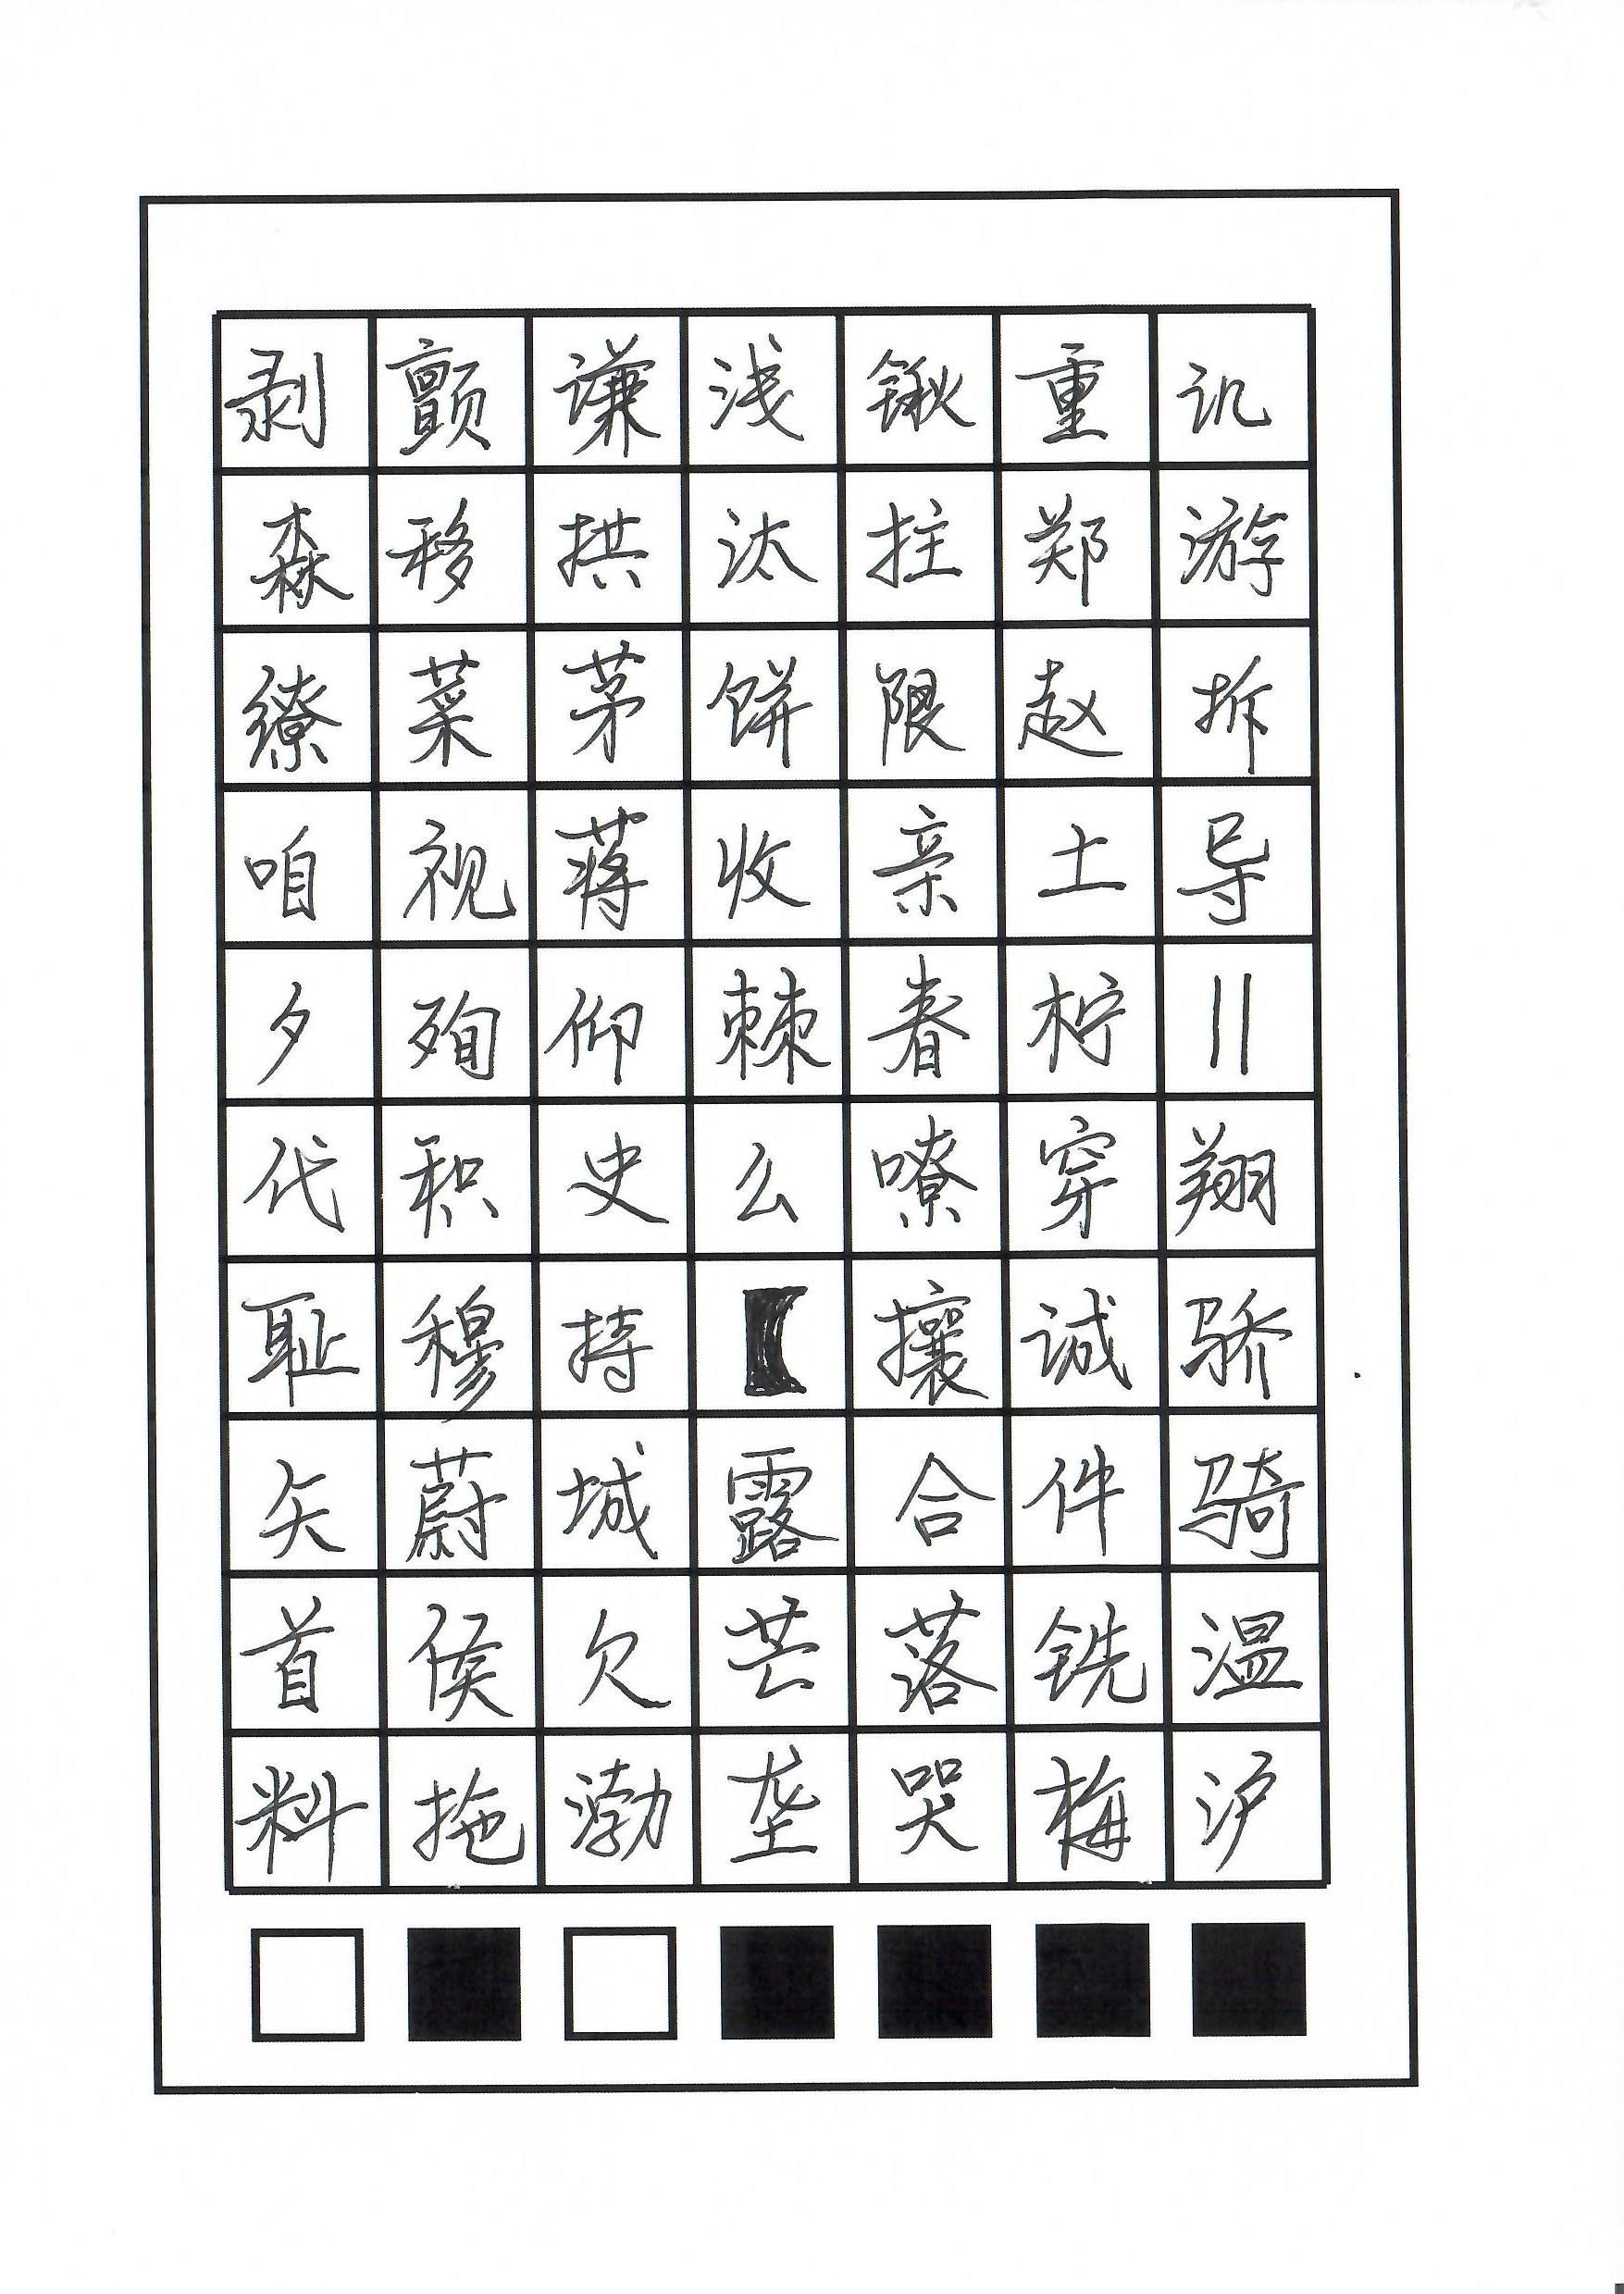 剥颤谦浅锹重讥
森移拱汰拄郑游
缭菜茅饼限赵拆
咱视蒋收亲土导
夕殉仰棘眷柠‖
代积史么嘹穿翔
耻穆持【攘诚骄
矢蔚城露合件骑
首侯欠芒落铣温
料拖渤垄哭梅沪